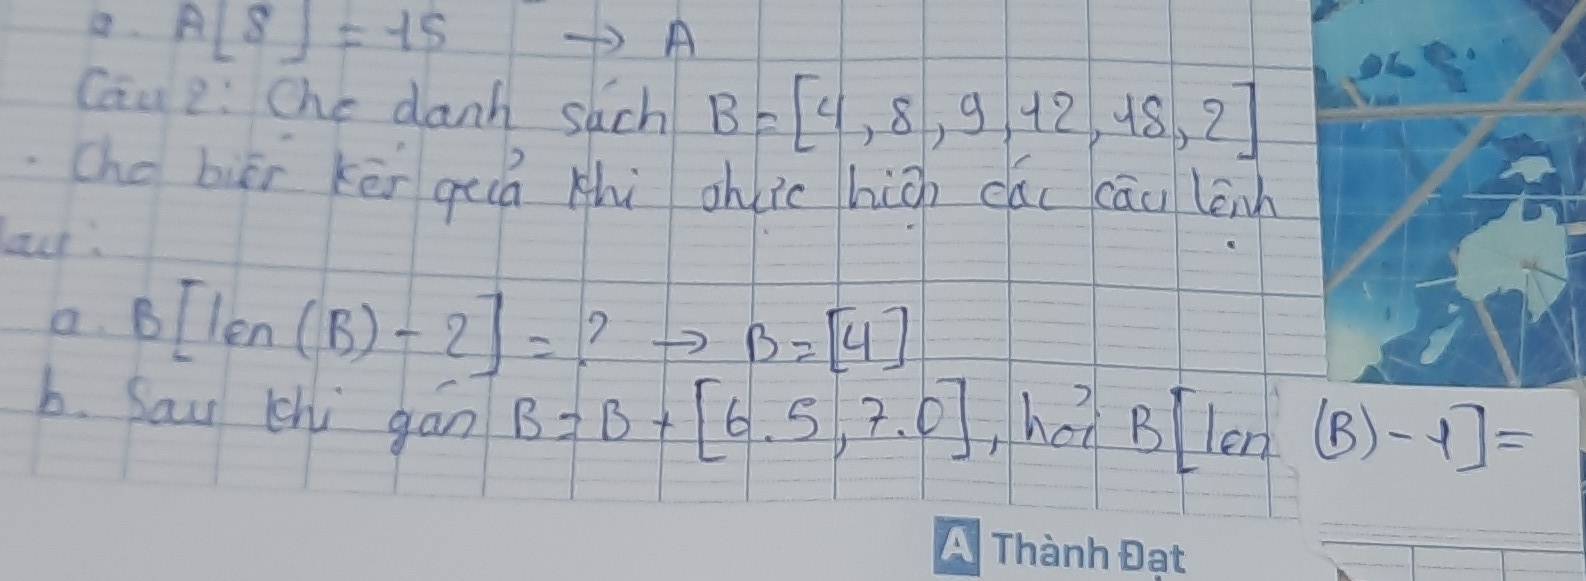 a. A[8] = 15 → A
Câu 2: Cho danh sách B = [4, 8, 9, 12, 18, 2]
. Cho biết kết quả khi thực hiện các câu lệnh
sau:
a. B[len(B) - 2] = ? → B = [4]
b. Sau khi gán B = B + [6.5, 7.0], hỏi B[len (B) - 1] =
A Thành Đạt